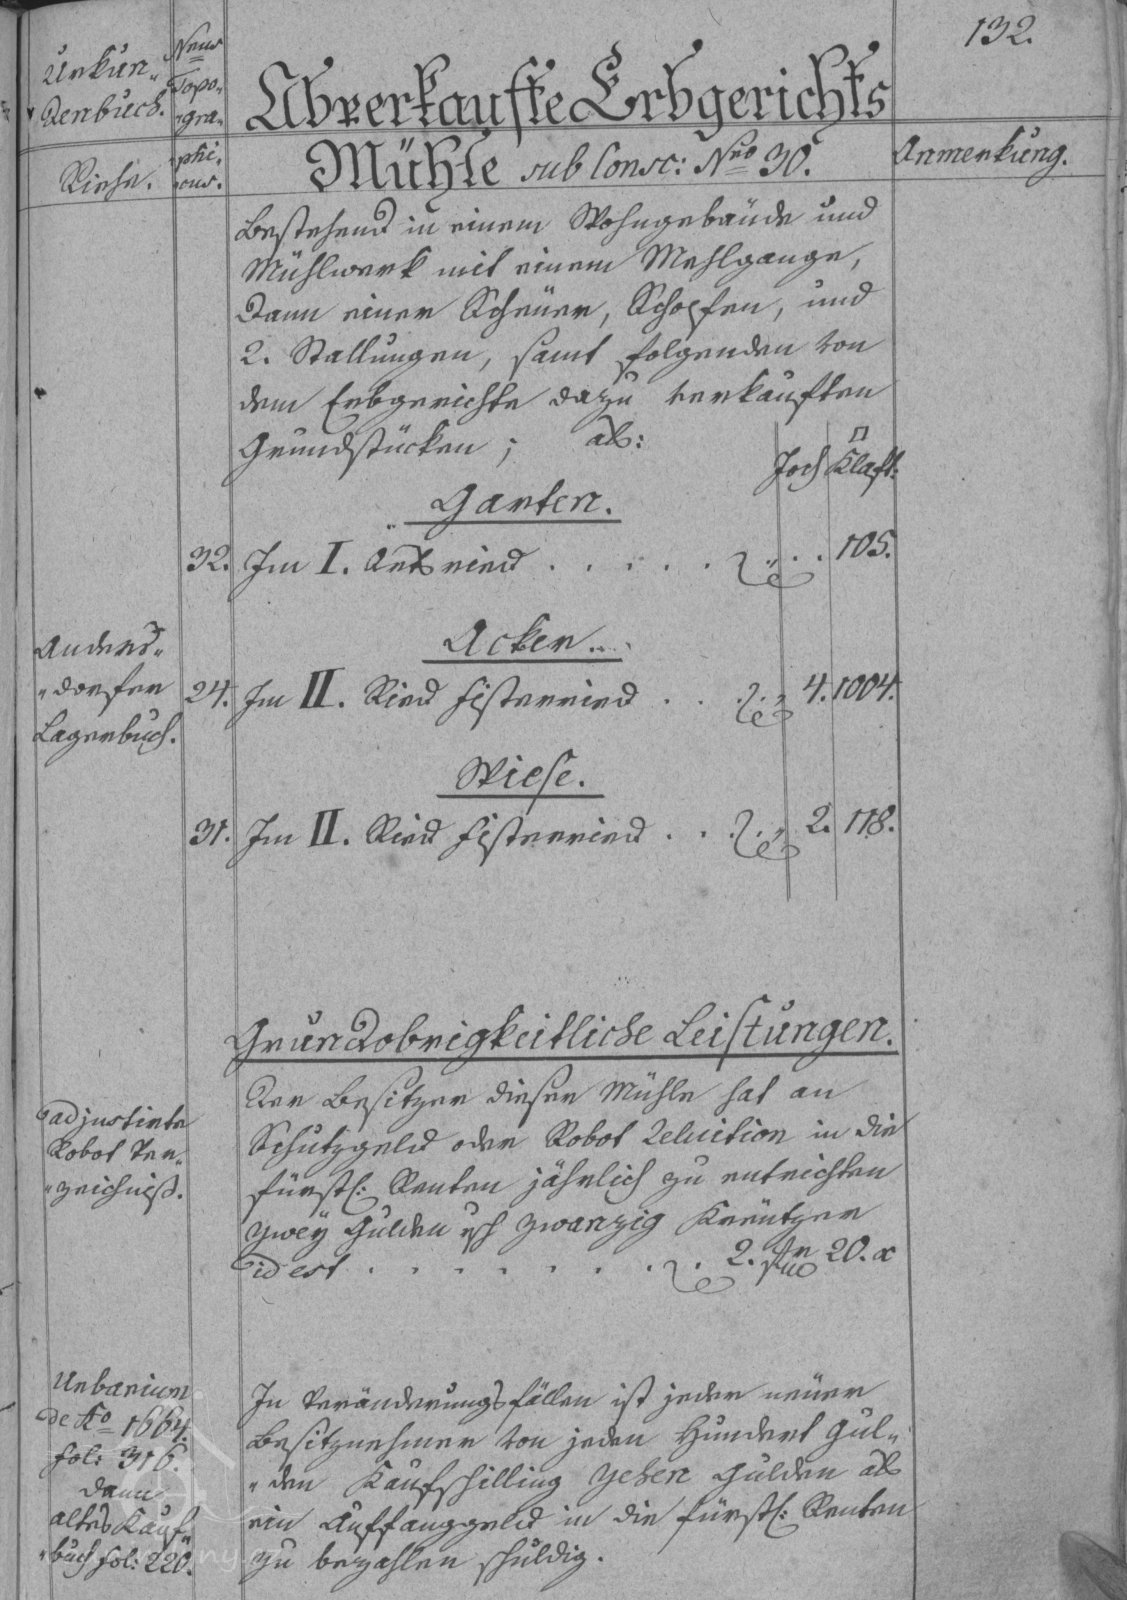 132.
Urkun-
denbuch.
Neue
No
Topo-
gra-
phi-
Abverkaufte Erbgerichts
Mühle sub Consc: Nro 30.
Anmerkung.
Bestehend in einem Wohngebäude und
Mühlwerk mit einem Mehlgange,
dann einer Scheüer, Schopfen, und
2. Stallungen, samt folgenden von
dem Erbgerichte dazu verkauften
Grundstücken; als:
Joch □ Klaft:
Garten.
32. Im I. Ortsried . . . . . „ . . 105.
Acker.
Anders-
„dorfer
Lagerbuch.
24. Im II. Ried Fisterried . . . „ 4. 1004.
Wiese.
31. Im II. Ried Fisterried . . . „ 2. 118.
Grundobrigkeitliche Leistungen.
adjustirte
Robot Ver-
„zeichniß.
Der Besitzer dieser Mühle hat an
Schutzgeld oder Robot Reluition in die
fürstl: Renten jährlich zu entrichten
zweÿ Gulden zwanzig Kreützer
id est . . . . . . . . 2. 20. x
Urbarium
de Ao 1664.
fol: 316.
dann
altes Kauf-
„buch fol: 220.
In Veränderungsfällen ist jeder neüer
Besitznehmer von jeden Hundert Gul-
„den Kaufschilling zehen Gulden als
ein Auffanggeld in die fürstl: Renten
zu bezahlen schuldig.